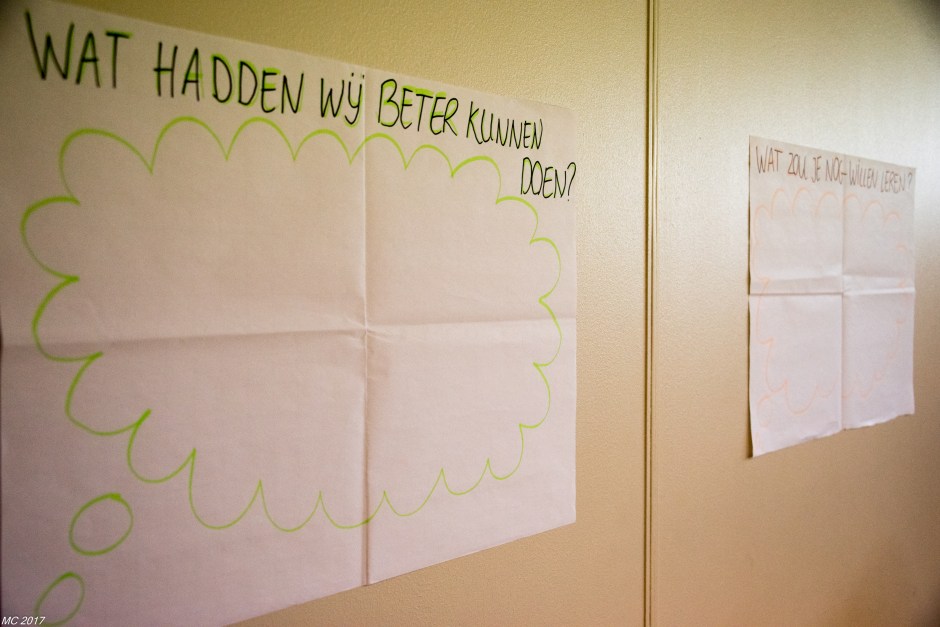 WAT HADDEN WIJ BETER KUNNEN
DOEN?
WAT ZOU JE NOG WILLEN LEREN?
MC 2017